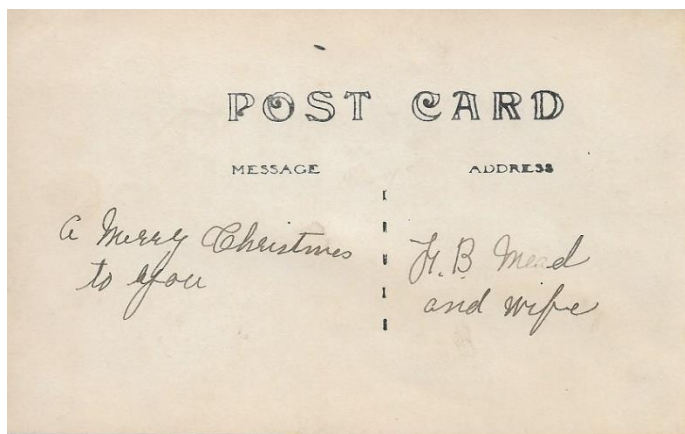 POST CARD
MESSAGE ADDRESS
A Merry Christmas
to you
H. B. Mead
and wife